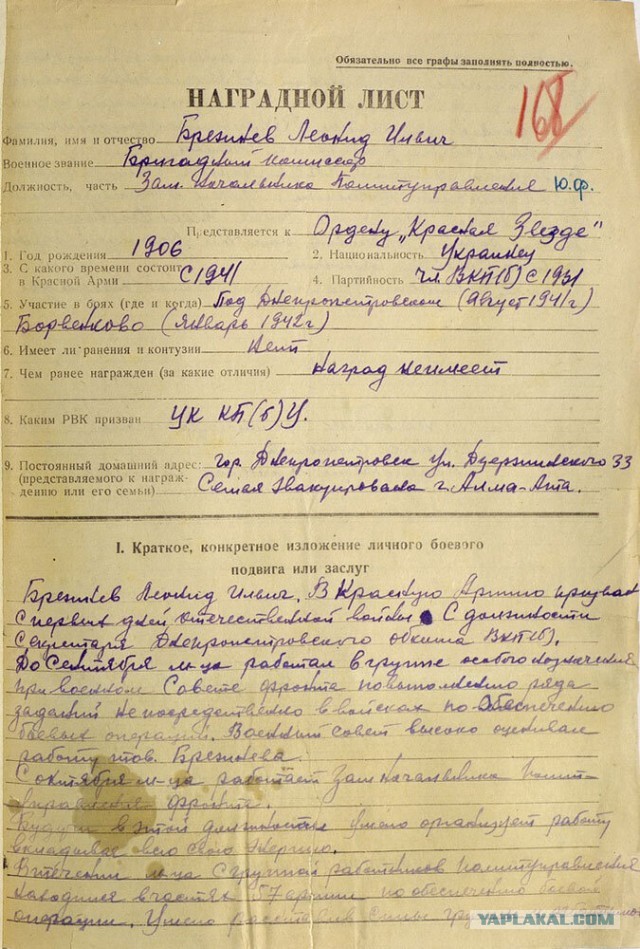 Обязательно все графы заполнять полностью.
НАГРАДНОЙ ЛИСТ
168
Фамилия, имя и отчество Брежнев Леонид Ильич
Военное звание Бригадный комиссар
Должность, часть Зам. Начальника Политуправления Ю.Ф.
Представляется к Ордену „Красная Звезда"
1. Год рождения 1906 2. Национальность Украинец
3. С какого времени состоит
в Красной Арми с 1941 4. Партийность чл. ВКП(б) с 1931
5. Участие в брях (где и когда) Под Днепропетровском (Август 1941 г)
Борвенково (Январь 1942 г)
6. Имеет ли ранения и контузии Нет
7. Чем ранее награжден (за какие отличия) Наград неимеет
8. Каким РВК призван УК КП(б)У.
9. Постоянный домашний адрес: гор. Днепропетровск ул. Дзержинского 33
(представляемого к награж-
дению или его семьи) Семья Эвакуирована г. Алма-Ата.
I. Краткое, конкретное изложение личного боевого
подвига или заслуг
Брежнев Леонид Ильич. В Красную Армию призван
с первых дней отечественной войны с должности
секретаря Днепропетровского обкома ВКП(б).
До Сентября м-ца работал в группе особого назначения
при военном Совете фронта по выполнению ряда
заданий непосредственно в войсках по обеспечению
боевых операций. Военный совет высоко оценивал
работу тов. Брежнева.
С октября м-ца работает Зам начальника Полит-
управления фронта.
Будучи в этой должности умело организует работу
вкладывая всю свою Энергию.
В течении м-ца с группой работников Политуправления
находился в частях 57 армии по обеспечению боевой
операции. Умело расставив силы
YAPLAKAL.COM